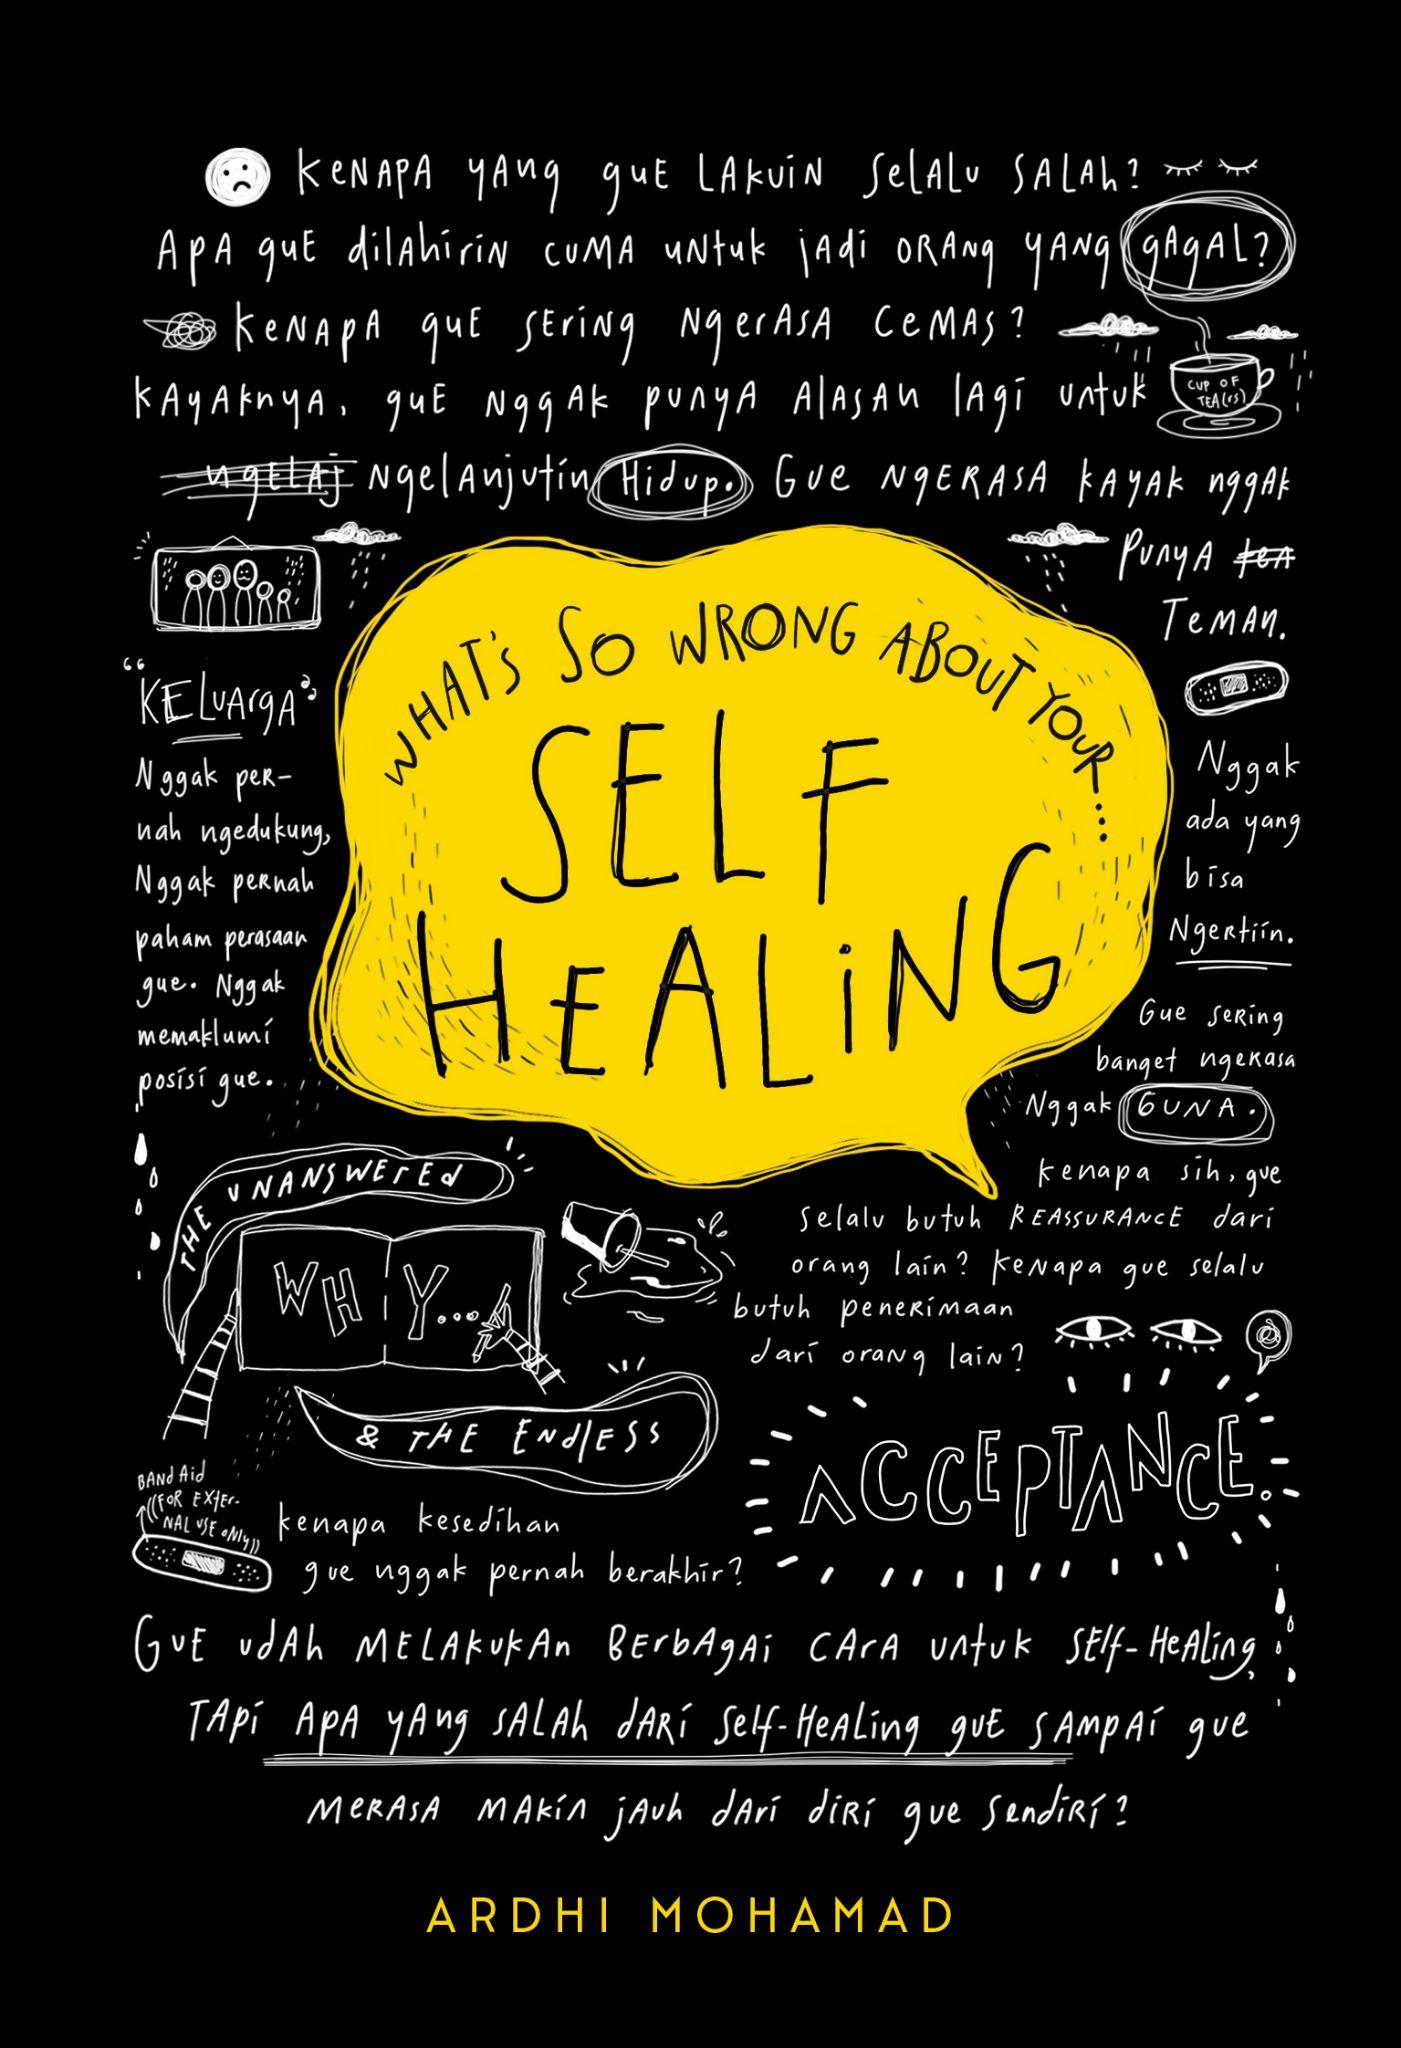 KENAPA YANG GUE LAKUIN SELALU SALAH?
APA GUE DILAHIRIN CUMA UNTUK JADI ORANG YANG GAGAL?
KENAPA GUE SERING NGERASA CEMAS?
KAYAKNYA, GUE NGGAK PUNYA ALASAN LAGI UNTUK
CUP OF
TEA(rs)
NGELAJ NGELANJUTIN HIDUP. GUE NGERASA KAYAK NGGAK
PUNYA TEA
TEMAN.
WHAT'S SO WRONG ABOUT YOUR...
SELF
HEALING
"KELUARGA"
Nggak per-
nah ngedukung,
Nggak pernah
paham perasaan
gue. Nggak
memaklumi
posisi gue.
Nggak
ada yang
bisa
Ngertiin.
Gue sering
banget ngerasa
Nggak GUNA.
kenapa sih, gue
selalu butuh REASSURANCE dari
orang lain? kenapa gue selalu
butuh penerimaan
dari orang lain?
THE UNANSWERED
WHY...
& THE ENDLESS
ACCEPTANCE.
BAND AID
((FOR EXTER-
NAL USE ONLY))
kenapa kesedihan
gue nggak pernah berakhir?
GUE UDAH MELAKUKAN BERBAGAI CARA UNTUK SELF-HEALING,
TAPI APA YANG SALAH DARI SELF-HEALING GUE SAMPAI GUE
MERASA MAKIN JAUH DARI DIRI GUE SENDIRI?
ARDHI MOHAMAD